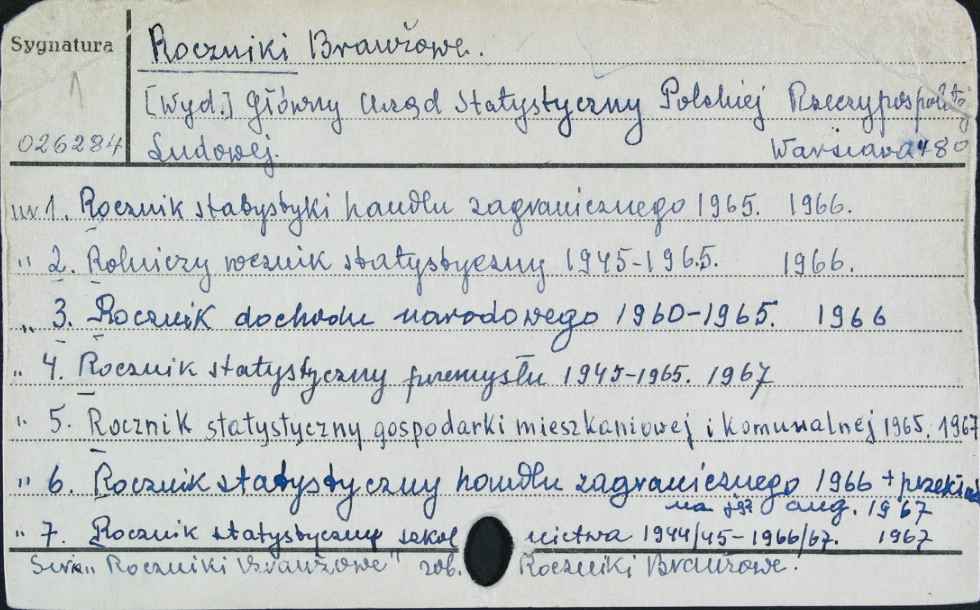 Sygnatura
1
026284
Roczniki Branżowe.
[Wyd.] Główny Urząd Statystyczny Polskiej Rzeczypospolitej
Ludowej. Warszawa
nr 1. Rocznik statystyki handlu zagranicznego 1965. 1966.
" 2. Rolniczy rocznik statystyczny 1945-1965. 1966.
" 3. Rocznik dochodu narodowego 1960-1965. 1966
" 4. Rocznik statystyczny przemysłu 1945-1965. 1967
" 5. Rocznik statystyczny gospodarki mieszkaniowej i komunalnej 1965. 1967
" 6. Rocznik statystyczny handlu zagranicznego 1966 + przekład
na jęz ang. 1967
" 7. Rocznik statystyczny szkolnictwa 1944/45-1966/67. 1967
"Roczniki Branżowe" zob. Roczniki Branżowe.